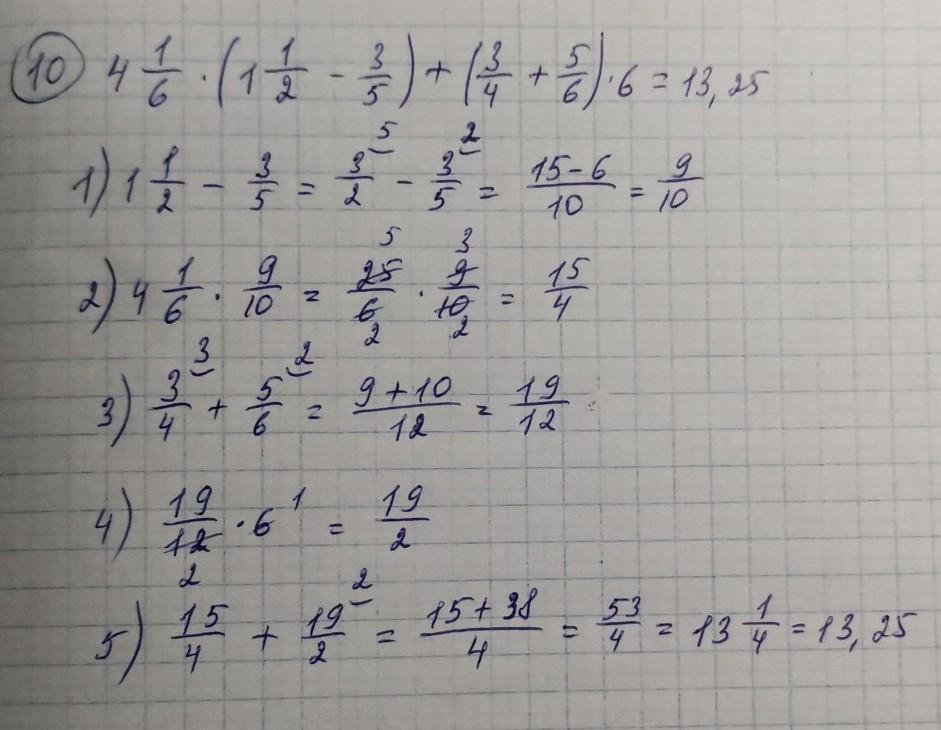 10 4 1/6 · (1 1/2 - 3/5) + (3/4 + 5/6) · 6 = 13,25
1) 1 1/2 - 3/5 = 3/2 ⁵ - 3/5 ² = 15-6/10 = 9/10
2) 4 1/6 · 9/10 = 25⁵/6₂ · 9³/10₂ = 15/4
3) 3/4 ³ + 5/6 ² = 9+10/12 = 19/12
4) 19/12₂ · 6 ¹ = 19/2
5) 15/4 + 19/2 ² = 15+38/4 = 53/4 = 13 1/4 = 13,25